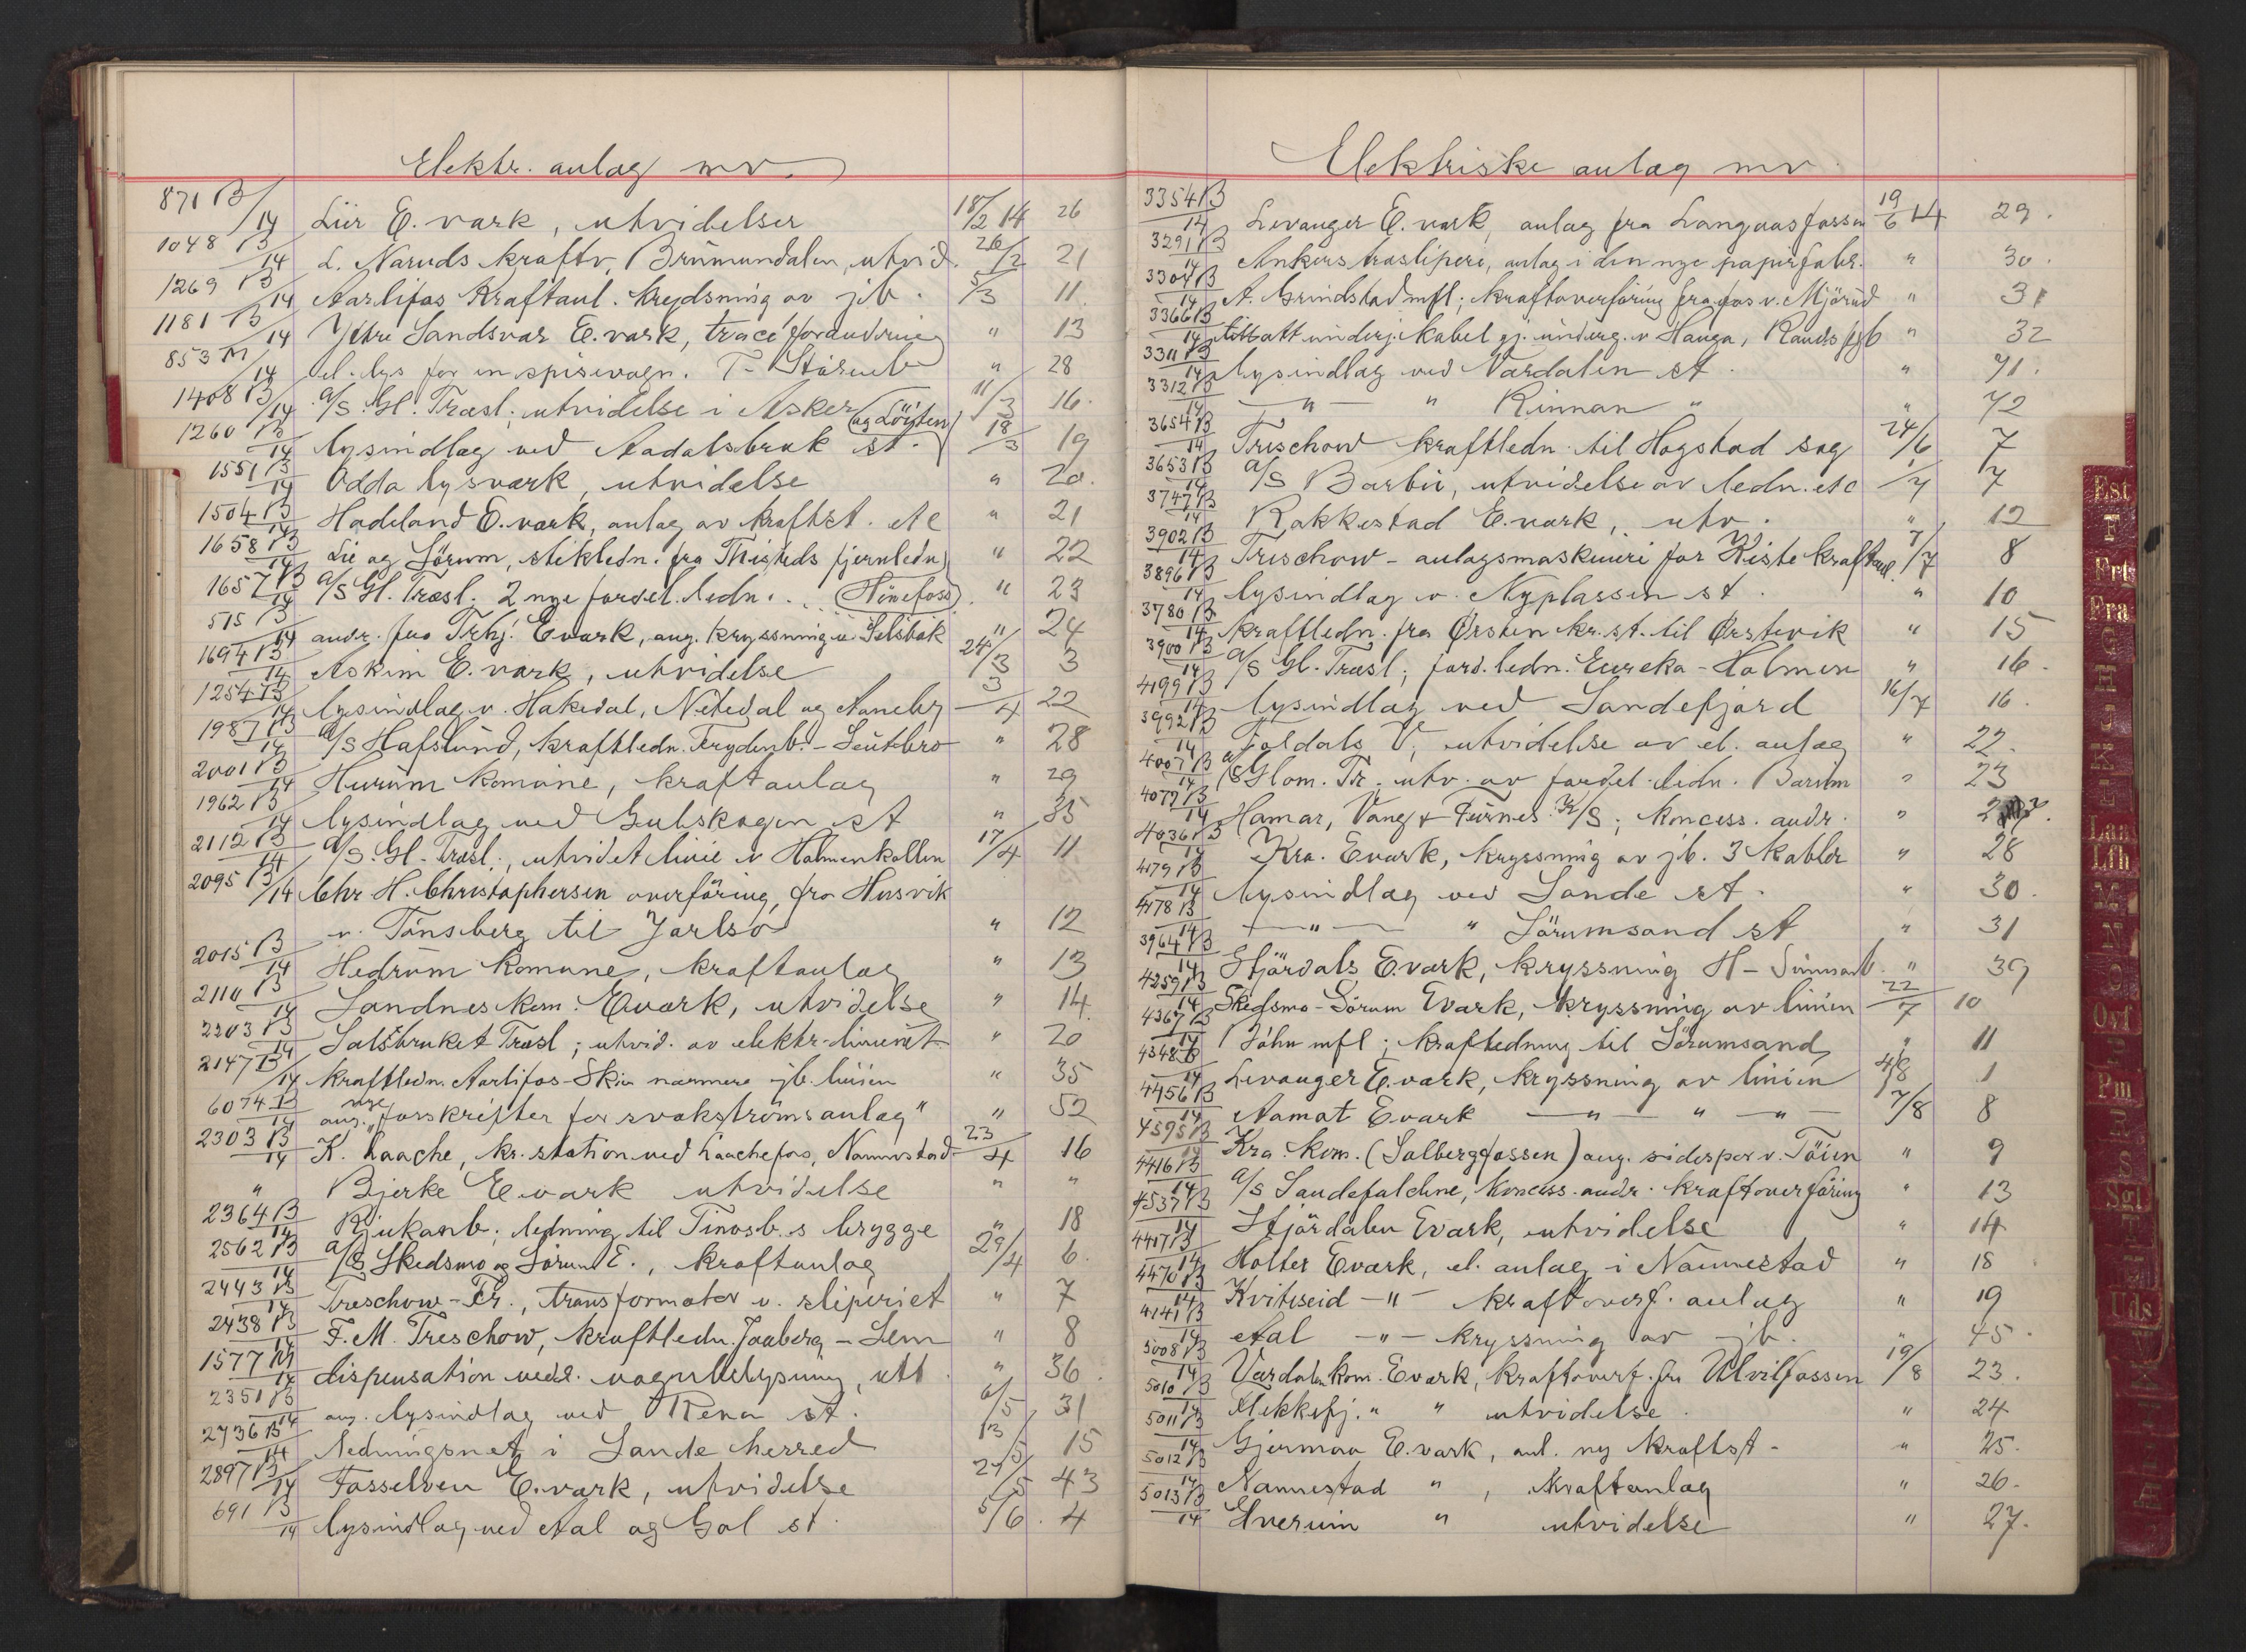 Elektr. anlæg mv.
871 B/14 Lier E. verk, utvidelser 18/2 14 26
1048 B/14 L. Naruds kraftv, Brumundalen, utvid. 26/2 21
1269 B/14 Aarlifos Kraftanl. krydsning av jb. 5/3 11
1181 B/14 Ytre Sandsvær E.værk, tracéforandring " 13
853 M/14 el. lys for en spisevogn. T- Stören " 28
1408 B/14 A/S Gl. Træsl. utvidelse i Asker 11/3 16
(og Löiten)
1260 B/14 lysindlæg ved Aadalsbruk st. 18/3 19
1551 B/14 Odda lysværk, utvidelse " 20.
1504 B/14 Hadeland E.værk, anlæg av kraftst. etc " 21
1658 B/14 Lie og Sörum, stikledn. fra Thisteds fjernledn. " 22
1657 B/14 A/S Gl. Træsl. 2 nye fordel. ledn. (Hönefoss). " 23
515 B/14 andr. fra Trhj. E værk, ang. kryssning v. Selsbak " 24
1694 B/14 Askim E. værk, utvidelse 24/3 3
1254 B/14 lysindlæg v. Hakedal, Nitedal og Aaneby 3/4 22
1987 B/14 A/S Hafslund, kraftledn. Frydenb. - Sentebro " 28
2001 B/14 Hurum komune, kraftanlæg " 29
1962 B/14 lysindlæg ved Gulskogen st " 35
2112 B/14 A/S. Gl. Træsl., utvidet linie v Holmenkollen 17/4 11
2095 B/14 Chr H. Christophersen overföring, fra Husvik
v. Tönsberg til Jarlsö " 12
2015 B/14 Hedrum Komune, kraftanlæg " 13
2110 B/14 Sandnes kom. E værk, utvidelse " 14.
2203 B/14 Salsbruket Træsl; utvid. av elektr. linienet " 20
2147 B/14 kraftledn. Aarlifos - Skien nærmere jb. linien " 35
6074 B/14 ang. nye "forskrifter for svakströmsanlæg" " 52
2303 B/14 K. Laache, kr. station ved Laachefos, Nannestad 23/4 16
" Bjerke E værk utvidelse " "
2364 B/14 Rjukanb; ledning til Tinosb.s brygge " 18
2562 B/14 A/S Skedsmo og Sörum E., kraftanlæg 29/4 6.
2443 B/14 Treschow-Fr., transformator v. sliperiet " 7
2438 B/14 F. M. Treschow, kraftledn. Jaaberg - Lem " 8
1577 M/14 dispensation vedr. vognbelysning, ett " 36.
2351 B/14 ang. lysindlæg ved Rena st. 6/5 31
2736 B/14 ledningsnet i Sande herred 13/5 15
2897 B/14 Fosselven E.værk, utvidelse 27/5 43
691 B/14 lysindlæg ved Aal og Gol st. 5/6. 4
Elektriske anlæg mv.
3354 B/14 Levanger E. værk, anlæg fra Langaasfossen 19/6 14 29.
3291 B/14 Ankers træsliperi, anlæg i den nye papirfabr. " 30.
3304 B/14 A. Grindstad mfl; kraftoverföring fra fos v. Mjörud " 31
3366 B/14 underj. kabel gj. underg. v Hauga, Randsfjb " 32
3311 B/14 lysindlæg ved Værdalen st. " 71.
3312 B/14 -"- " Rinnan " " 72
3654 B/14 Treschow kraftledn. til Hogstad sag 24/6 7
3653 B/14 A/S Barbu, utvidelse av ledn. etc 1/7 7
3747 B/14 Rakkestad E. værk, utv. " 12
3902 B/14 Treschow - anlægsmaskineri for Kiste kraftanl. 7/7 8
3896 B/14 lysindlæg v. Nyplassen st. " 10
3780 B/14 kraftledn. fra Ørsten kr. st. til Ørstevik " 15
3900 B/14 A/S Gl. Træsl; ford. ledn. Eureka - Holmen " 16.
4199 B/14 lysindlæg ved Sandefjord 16/7 16.
3992 B/14 Foldals V; utvidelse av el. anlæg " 22.
4007 B/14 A/S Glom. Tr. utv. av fordel. ledn. Bærum " 23
4079 B/14 Hamar, Vang & Furnes K/S; koncess. andr. "
4036 B/14 Kra. E værk, kryssning av jb. 3 kabler " 28
4179 B/14 lysindlæg ved Sande st. " 30.
4178 B/14 -"- " Sörumsand st " 31
3964 B/14 Stjördals E.værk, kryssning H- Sunnanb. " 39
4259 B/14 Skedsmo - Sörum E værk, kryssning av linien 22/7 10
4367 B/14 Döhn mfl; kraftledning til Sörumsand " 11
4348 B/14 Levanger E. værk, kryssning av linien 4/8 1
4456 B/14 Aamot E værk -"- " -"- 7/8 8
4595 B/14 Kra. kom. (Solbergfossen) ang. sidespor v. Töien " 9
4416 B/14 A/S Saudefaldene, koncess. andr. kraftoverföring " 13
4537 B/14 Stjördalen E værk, utvidelse " 14
4417 B/14 Holter E værk, el. anlæg i Nannestad " 18
4470 B/14 Kviteseid -"- kraftoverf. anlæg " 19
4141 B/14 Aal -"- kryssning av jb. " 45.
5008 B/14 Værdalen kom. E værk, kraftoverf. fra Ulvilfossen 19/8 23.
5010 B/14 Flekkefj. " " utvidelse. " 24
5011 B/14 Gjermaa E. værk, anl. ny kraftst - " 25.
5012 B/14 Nannestad " , kraftanlæg " 26.
5013 B/14 Elverum " utvidelse " 27.
Est
F
Frt
Fra
G
H
J
K
L
Laa
Lfb
M
N
O
Osf
P
Pm
R
S
Sgl
T
Uds